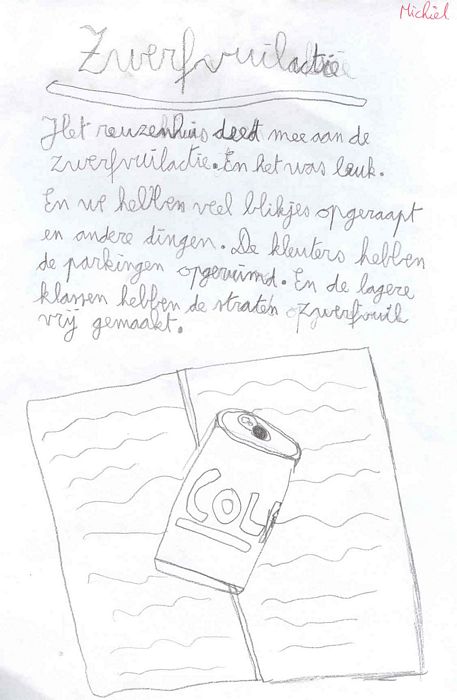 Michiel
Zwerfvuilactie
Het reuzenhuis deed mee aan de
zwerfvuilactie. En het was leuk.
En we hebben veel blikjes opgeraapt
en andere dingen. De kleuters hebben
de parkingen opgeruimd. En de lagere
klassen hebben de straten zwerfvuil
vrij gemaakt.
COL